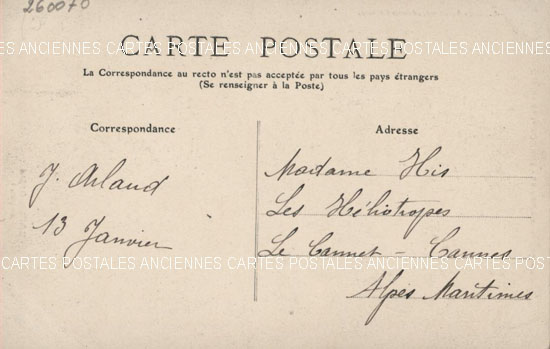 260070
CARTE POSTALE
CARTES POSTALES ANCIENNES CARTES POSTALES ANCIENNES CARTES POSTALES ANCIENNES
La Correspondance au recto n'est pas acceptée par tous les pays étrangers
(Se renseigner à la Poste)
Correspondance
J. Arlaud
13 Janvier
Adresse
Madame His
Les Héliotropes
Le Cannet - Cannes
Alpes Maritimes
CARTES POSTALES ANCIENNES CARTES POSTALES ANCIENNES CARTES POSTALES ANCIENNES